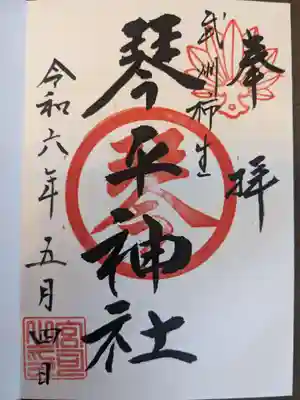 奉拝
武州柿生
琴平神社
令和六年五月四日